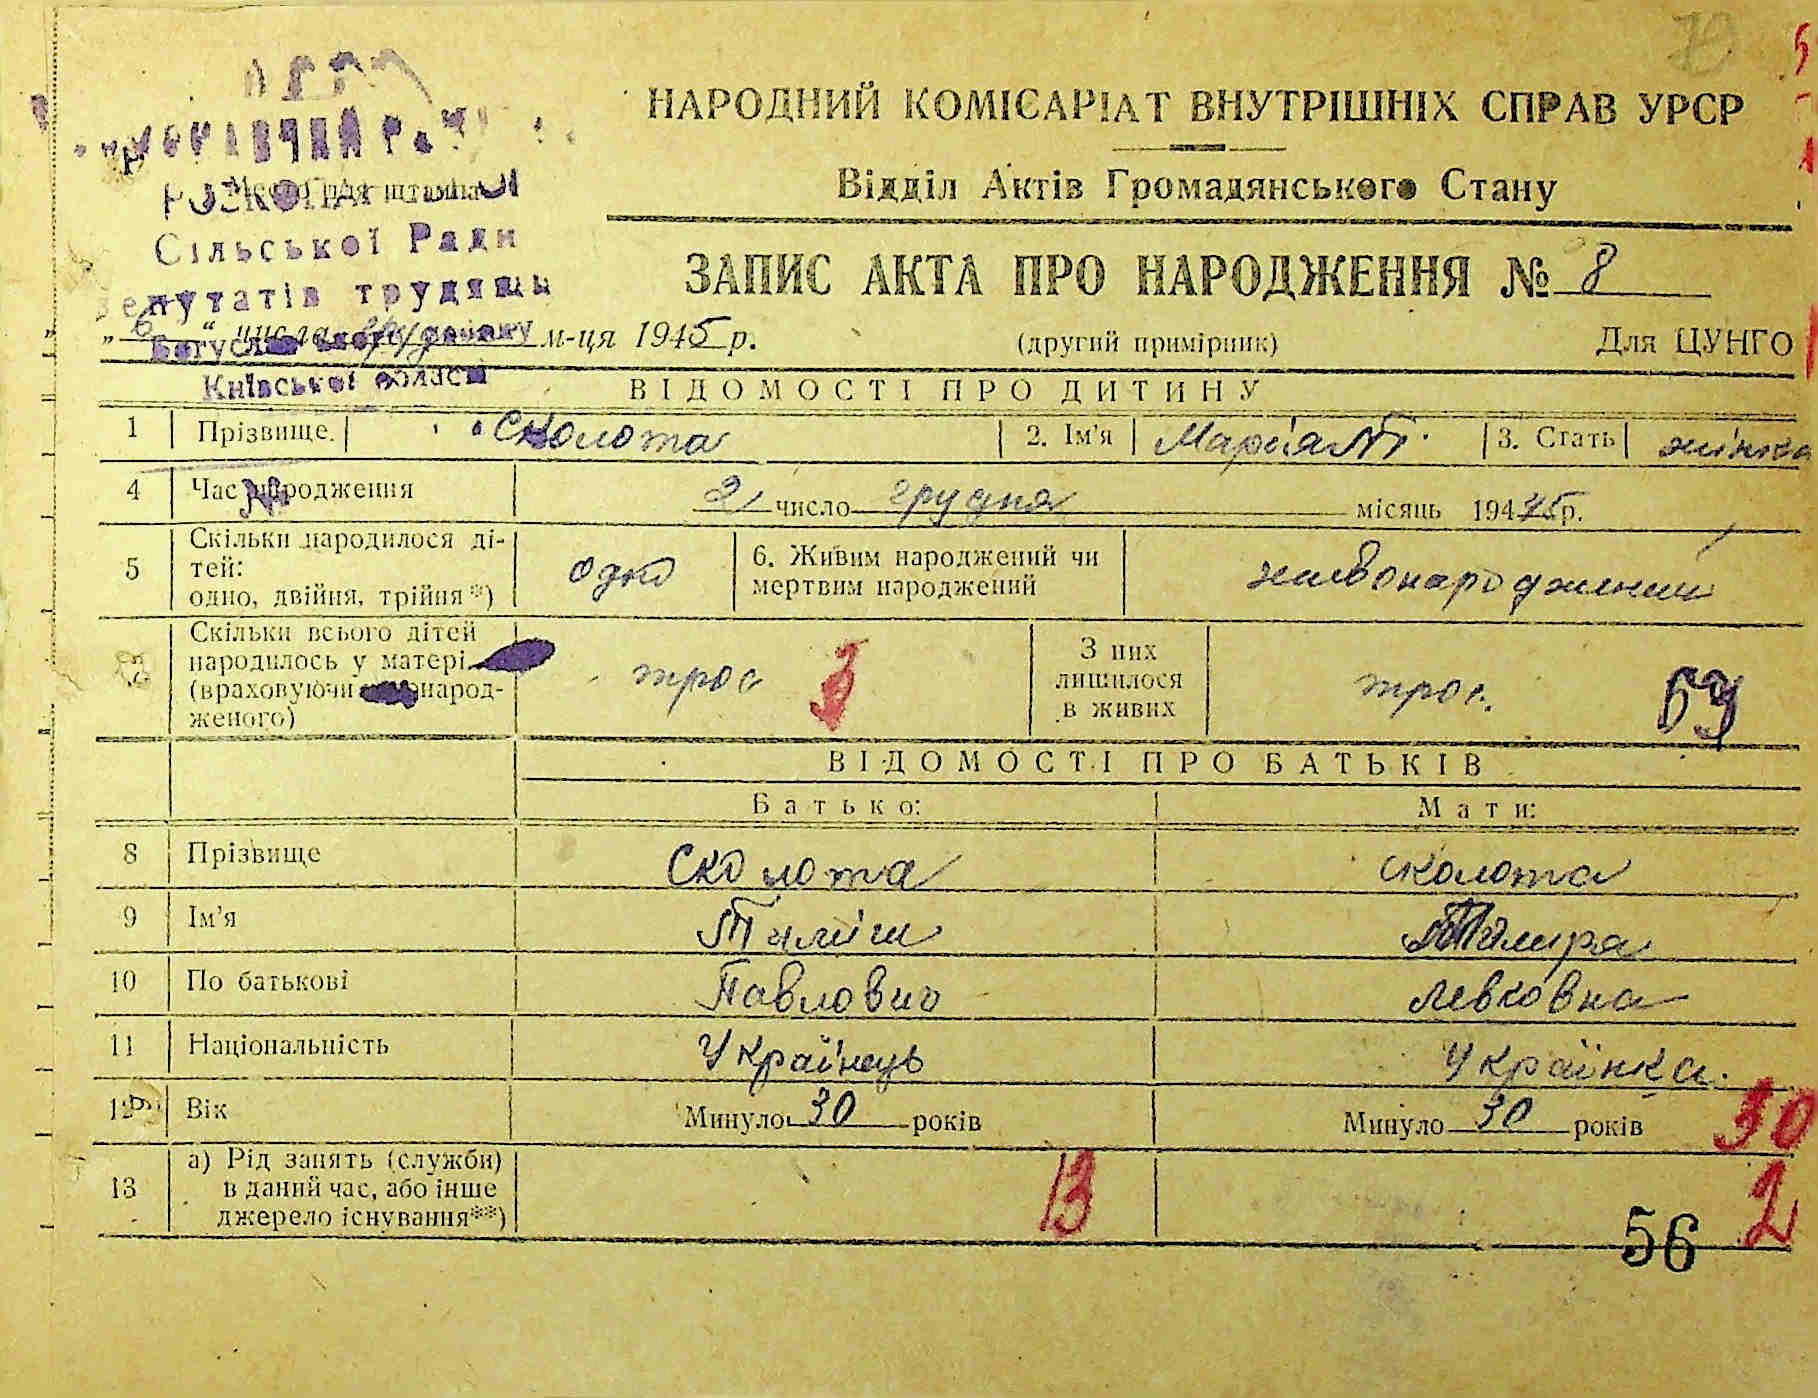 НАРОДНИЙ КОМІСАРІАТ ВНУТРІШНІХ СПРАВ УРСР
Відділ Актів Громадянського Стану
Місце для штампа
Сільської Ради
депутатів трудящих
Богуславського району
Київської області
ЗАПИС АКТА ПРО НАРОДЖЕННЯ № 8
„ 6 “ числа грудня м-ця 1945 р. (другий примірник) Для ЦУНГО
ВІДОМОСТІ ПРО ДИТИНУ
1 Прізвище. Сколота 2. Ім'я Марія 3. Стать жінка
4 Час народження 2 число грудня місяць 1945 р.
5 Скільки народилося дітей: одно, двійня, трійня*) одно 6. Живим народжений чи мертвим народжений живонароджений
Скільки всього дітей народилось у матері (враховуючи народженого) троє 3 З них лишилося в живих троє
ВІДОМОСТІ ПРО БАТЬКІВ
Батько: Мати:
8 Прізвище Сколота Сколота
9 Ім'я
10 По батькові Павлович Левковна
11 Національність Українець Українка.
12 Вік Минуло 30 років Минуло 30 років 30
13 а) Рід занять (служби) в даний час, або інше джерело існування**) 13 2
56